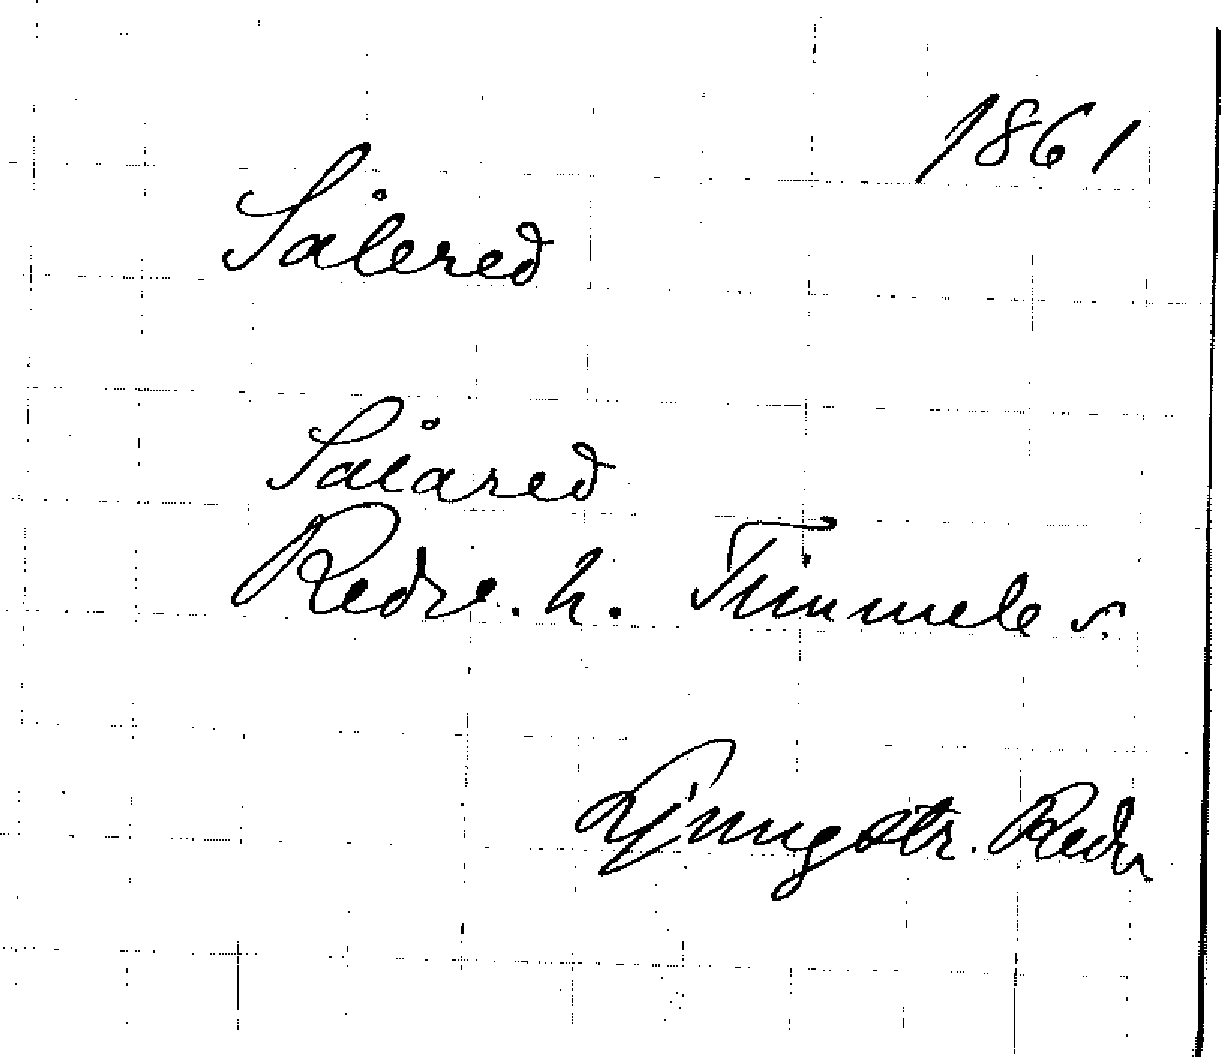 1861
Sålered
Sålared
Redv. h. Timmele s.
Ljungstr. Redv